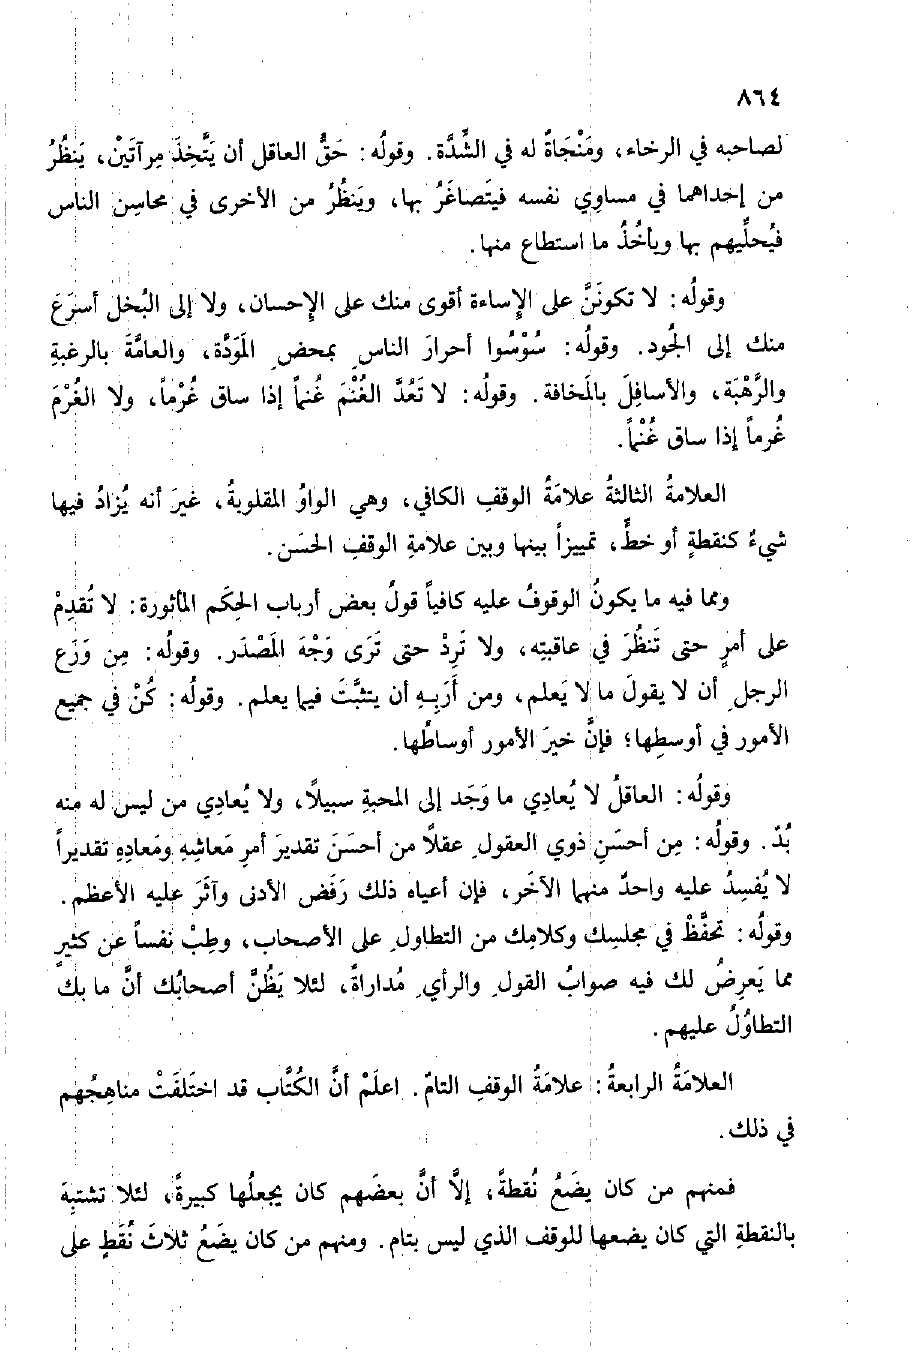 ٨٦٤
لصاحبه في الرخاء، ومَنْجَاةٌ له في الشِّدَّة. وقولُه: حَقُّ العاقل أن يَتَّخِذَ مِرآتَينْ، يَنظُرُ
من إحداهما في مساوِي نفسه فيتَصاغَرُ بها، ويَنظُرُ من الأخرى في محاسِن الناس
فيُحلِّيهم بها ويأخُذُ ما استطاع منها.
وقولُه: لا تكونَنَّ على الإِساءة أقوى منك على الإحسان، ولا إلى البُخل أسرَعَ
منك إلى الجُود. وقولُه: سُوْسُوا أحرارَ الناس بمحض المَوَدَّة، والعامَّةَ بالرغبةِ
والرَّهْبَة، والأسافِلَ بالمَخافة. وقولُه: لا تَعُدَّ الغُنْمَ غُنماً إذا ساق غُرْماً، ولا الغُرْمَ
غُرماً إذا ساق غُنْماً.
العلامةُ الثالثةُ علامَةُ الوقفِ الكافي، وهي الواوُ المقلوبةُ، غيرَ أنه يُزادُ فيها
شيءٌ كنقطةٍ أو خطٍّ، تمييزاً بينها وبين علامةِ الوقفِ الحسَن.
ومما فيه ما يكونُ الوقوفُ عليه كافياً قولُ بعض أرباب الحِكَم المأثورة: لا تُقدِمْ
على أمرٍ حتى تَنظُرَ في عاقبتِه، ولا تَرِدْ حتى تَرَى وَجْهَ المَصْدَر. وقولُه: مِن وَرَع
الرجل أن لا يقولَ ما لا يَعلم، ومن أَرَبِهِ أن يتثبَّتَ فيما يعلم. وقولُه: كُنْ في جميع
الأمور في أوسطِها؛ فإنَّ خيرَ الأمور أوساطُها.
وقولُه: العاقلُ لا يُعادِي ما وَجَد إلى المحبةِ سبيلاً، ولا يُعادِي من ليس له منه
بُدّ. وقولُه: مِن أحسَنِ ذوي العقول عقلاً من أحسَنَ تقديرَ أمرِ مَعاشِهِ ومَعادِهِ تقديراً
لا يُفسِدُ عليه واحدٌ منهما الآخَر، فإن أعياه ذلك رَفَض الأدنى وآثَرَ عليه الأعظم.
وقولُه: تحفَّظْ في مجلسِك وكلامِك من التطاول على الأصحاب، وطِبْ نفساً عن كثيرٍ
مما يَعرِضُ لك فيه صوابُ القول والرأي مُداراةً، لئلا يَظُنَّ أصحابُك أنَّ ما بك
التطاوُلُ عليهم.
العلامَةُ الرابعةُ: علامَةُ الوقفِ التامّ. اعلَمْ أنَّ الكُتَّاب قد اختَلَفَتْ مناهِجُهم
في ذلك.
فمنهم من كان يضَعُ نُقطةً، إلَّا أنَّ بعضَهم كان يجعلُها كبيرةً، لئلا تشتبِهَ
بالنقطةِ التي كان يضعها للوقف الذي ليس بتام. ومنهم من كان يضَعُ ثلاثَ نُقَطٍ على